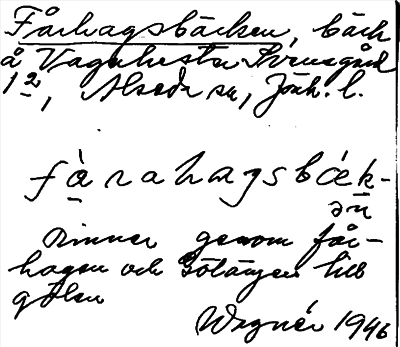 Fårhagsbäcken, bäck
å Vagnhester Svensgård
1 2, Alseda sn, Jönk. l.
fàrahagsbǽk-
ən
rinner genom får-
hagen och Götängen till
gölen
Wegnér 1946